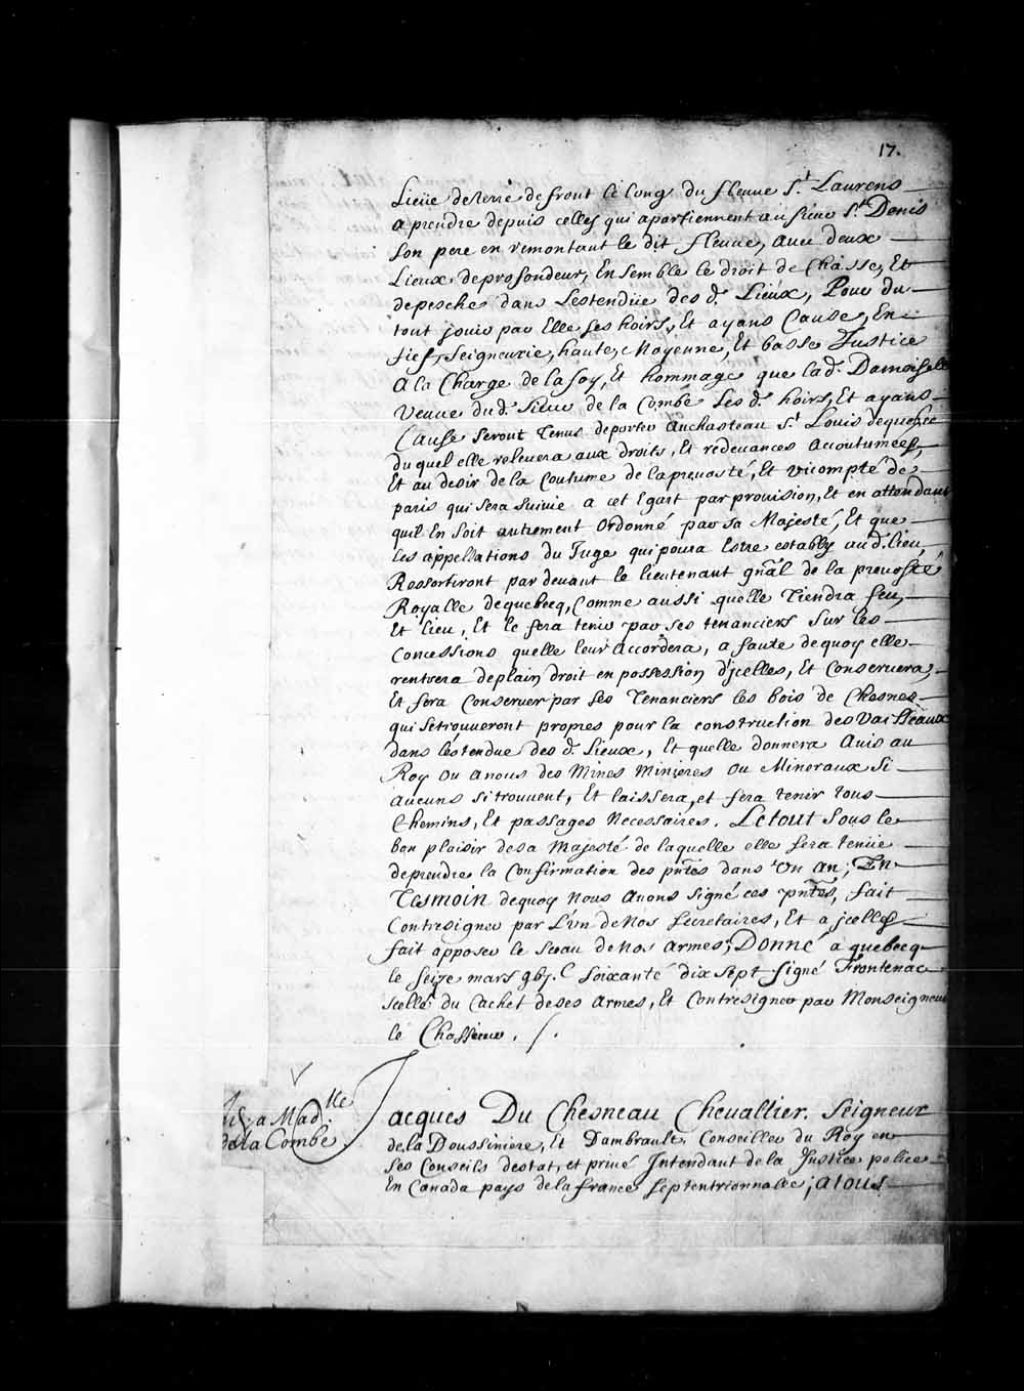 17.
Lieüe de terre de front le long du fleuue S.t Laurens
a prendre depuis celles qui apartiennent au sieur S.t Denis
son pere en remontant le dit fleuue, auec deux
Lieux de profondeur, Ensemble le droit de Chasse, Et
depesche dans Lestendüe des d. Lieux, Pour du
tout jouir par Elle ses hoirs, Et ayans Cause, En
fief, Seigneurie, haute, Moyenne, Et basse Justice
A la Charge de la foy, Et hommage que lad. Damoiselle
Veuue dud. Sieur de la Combe ses d. hoirs, Et ayans
Cause seront Tenus deporter au chasteau S.t Louis dequebec
du quel elle releuera aux droits, Et redeuances accoutumées,
Et au desir de la Coutume de la preuosté, Et vicompté de
paris qui sera suiuie a cet Egart par prouision, Et en attendant
quil En soit autrement Ordonné par sa Majesté, Et que
les appellations du Juge qui poura Estre estably aud. lieu,
Ressortiront par deuant le lieutenant gnãl de la preuosté
Royalle dequebecq, Comme aussi quelle Tiendra feu,
Et lieu, Et le fera tenir par ses tenanciers sur les
Concessions quelle leur accordera, a faute dequoy elle
rentrera deplain droit en possession d'jcelles, Et Conseruera,
Et fera Conseruer par ses Tenanciers les bois de Chesnes
qui setrouueront propres pour la construction des Vaisseaux
dans lestendue des d. Lieux, Et quelle donnera Auis au
Roy Ou anous des Mines Minieres Ou Mineraux si
aucuns sitrouuent, Et laissera, et fera tenir tous
Chemins, Et passages Necessaires. Letout sous le
bon plaisir desa Majesté de laquelle elle sera tenüe
deprendre la Confirmation des pntẽs dans Un an; En
Tesmoin dequoy Nous Auons signé ces pntẽs, fait
Contresigner par L'vn de Nos secretaires, Et a jcelles
fait apposer le sceau de Nos Armes; Donné a quebecq
le seize mars 
 soixante dix sept signé Frontenac
scellé du Cachet deses Armes, Et Contresigner par Monseigneur
le Chasseur. /.
a Mad.lle
dela Combe
Jacques Du Chesneau Cheuallier. Seigneur
dela Doussiniere, Et Dambrault, Conseiller du Roy en
ses Conseils destat, et priué Jntendant de la Justice police
En Canada pays de la france septentrionnalle; atous